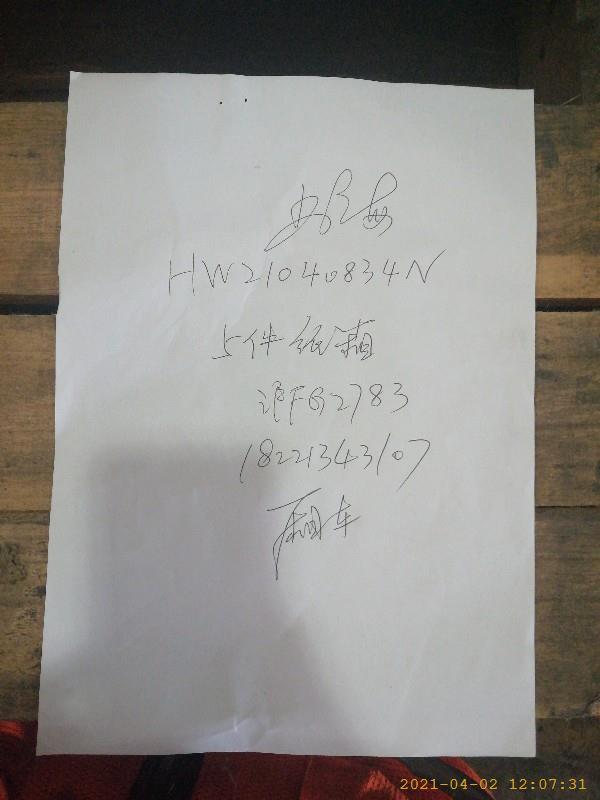 HW21040834N
5件纸箱
沪FG2783
18221343107
厢车
2021-04-02 12:07:31